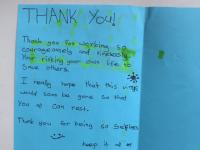 THANK YOU!
Thank you for working so
courageously and tirelessly
Your risking your own life to
save others.
I really hope that this virus
would soon be gone so that
you all can rest.
Thank you for being so selfless
keep it up